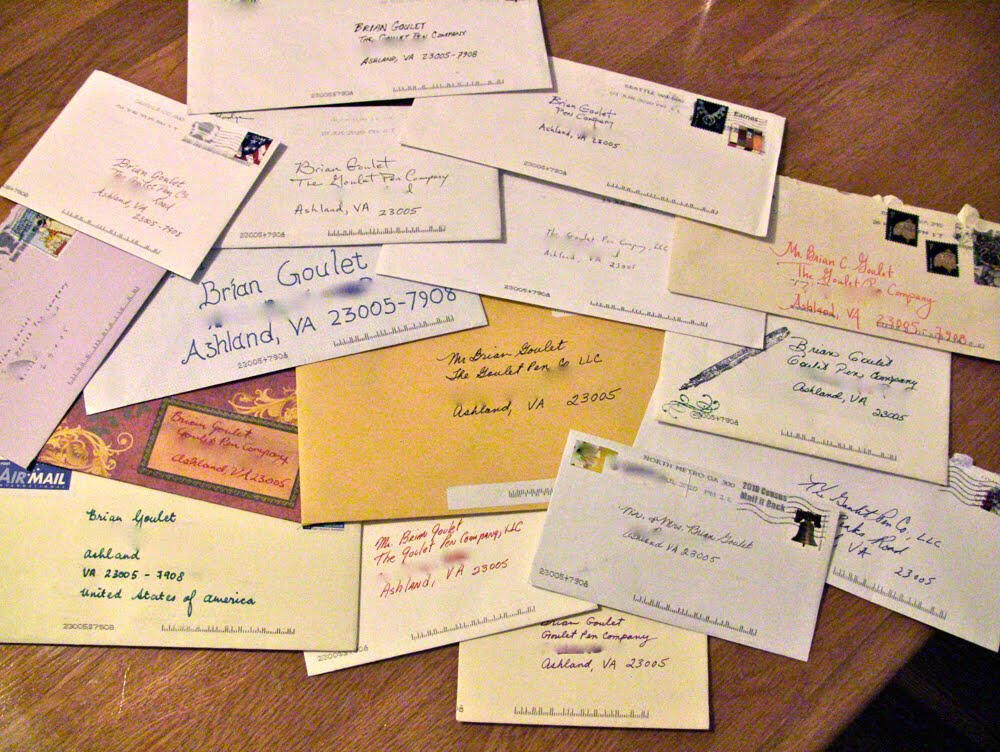 BRIAN GOULET
THE GOULET PEN COMPANY
ASHLAND, VA 23005-7908
23005+7908
Brian Goulet
Ashland, VA
23005-7908
Brian Goulet
The Goulet Pen Company
Ashland, VA 23005
23005+7908
SEATTLE
Eames
Brian Goulet
Pen Company
Ashland, VA 23005
23005+7908
The Goulet Pen Company, LLC
Ashland, VA 23005
23005+7908
Mr. Brian C. Goulet
The Goulet Pen Company
Ashland, VA 23005-7908
Brian Goulet
Ashland, VA 23005-7908
23005+7908
Mr Brian Goulet
The Goulet Pen Co LLC
Ashland, VA 23005
Brian Goulet
Goulet Pens Company
Ashland, VA
23005
+7908
Brian Goulet
Goulet Pen Company
Ashland, VA 23005
AIR MAIL
INTERNATIONAL
Brian Goulet
Ashland
VA 23005 - 7908
United States of America
23005+7908
Mr. Brian Goulet
The Goulet Pen Company, LLC
Ashland, VA 23005
23005+7908
NORTH METRO GA 300
2010 Census
Mail It Back
Mr. & Mrs. Brian Goulet
Ashland VA 23005
23005+7908
The Goulet Pen Co., LLC
Road
VA 23005
Brian Goulet
Goulet Pen Company
Ashland, VA 23005